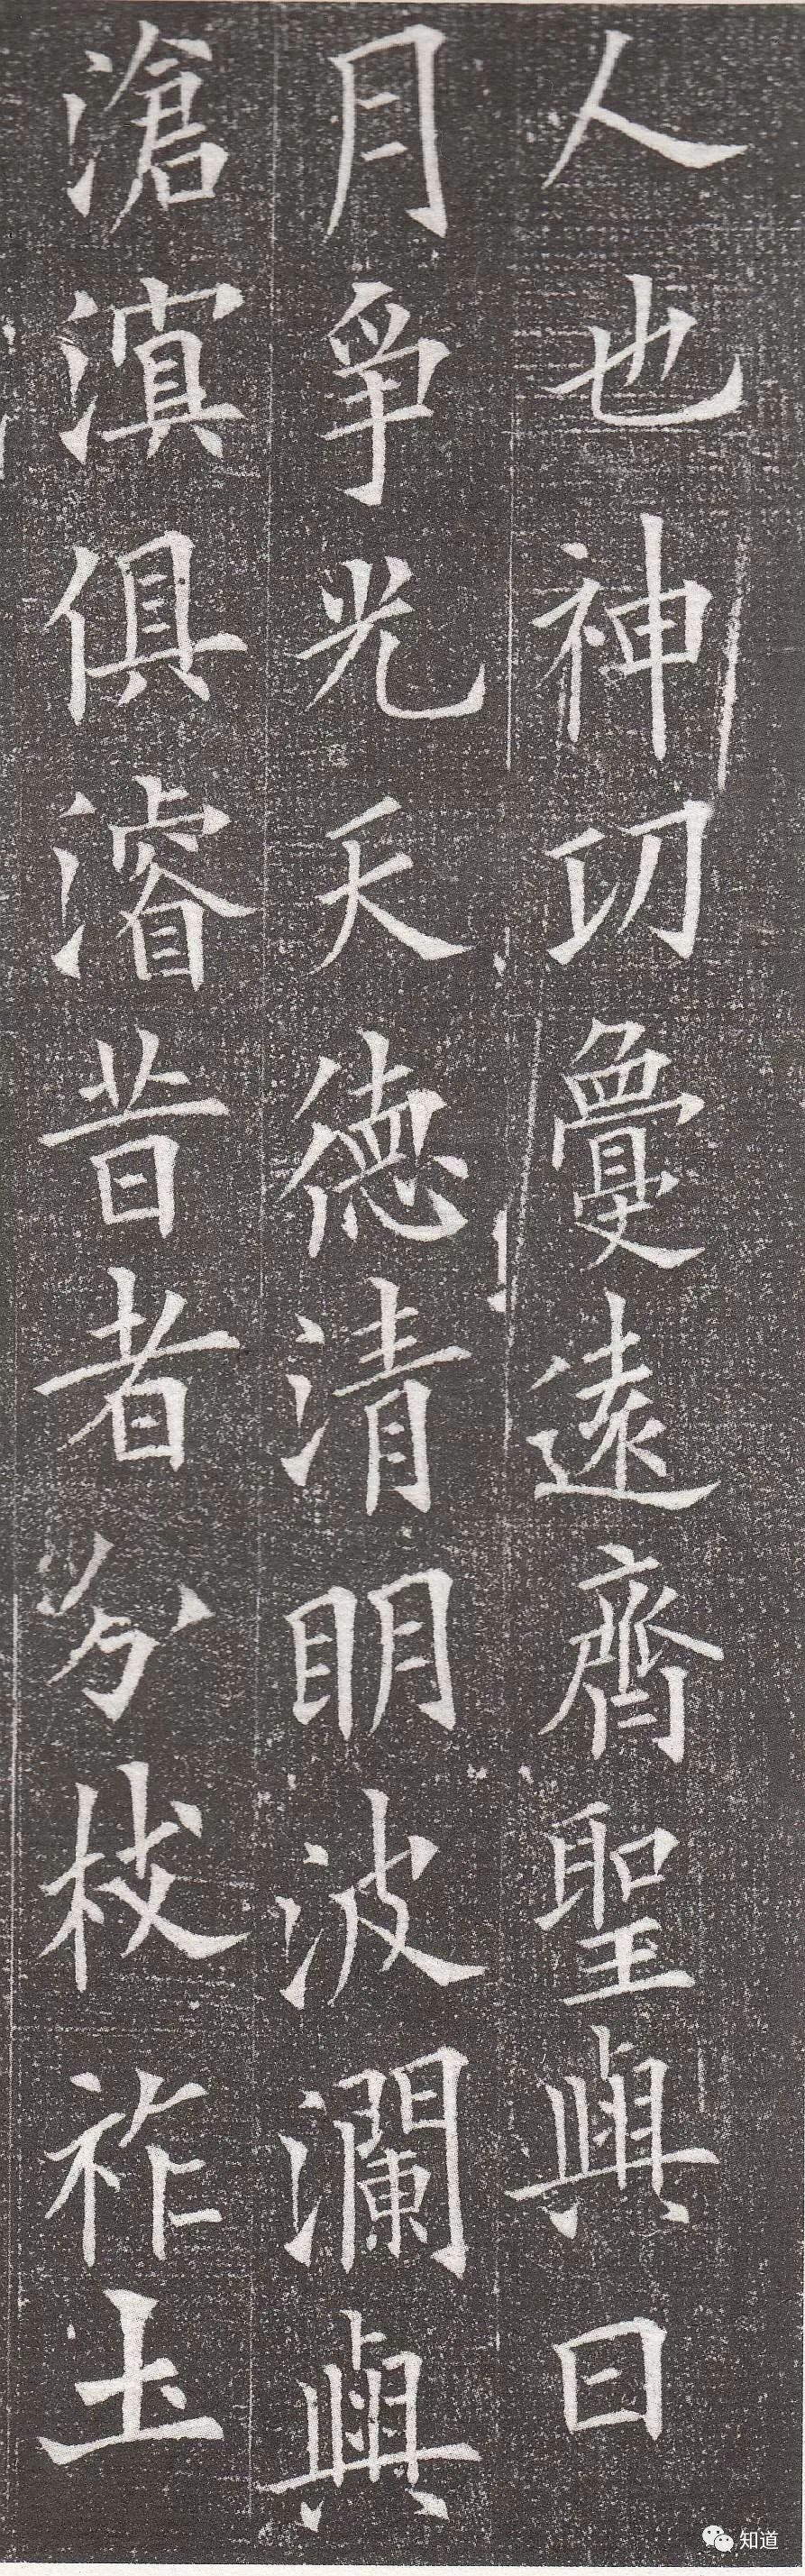 人也神功敻遠齊聖與日
月爭光天德清明波瀾與
滄溟俱濬昔者分枝祚土
知道